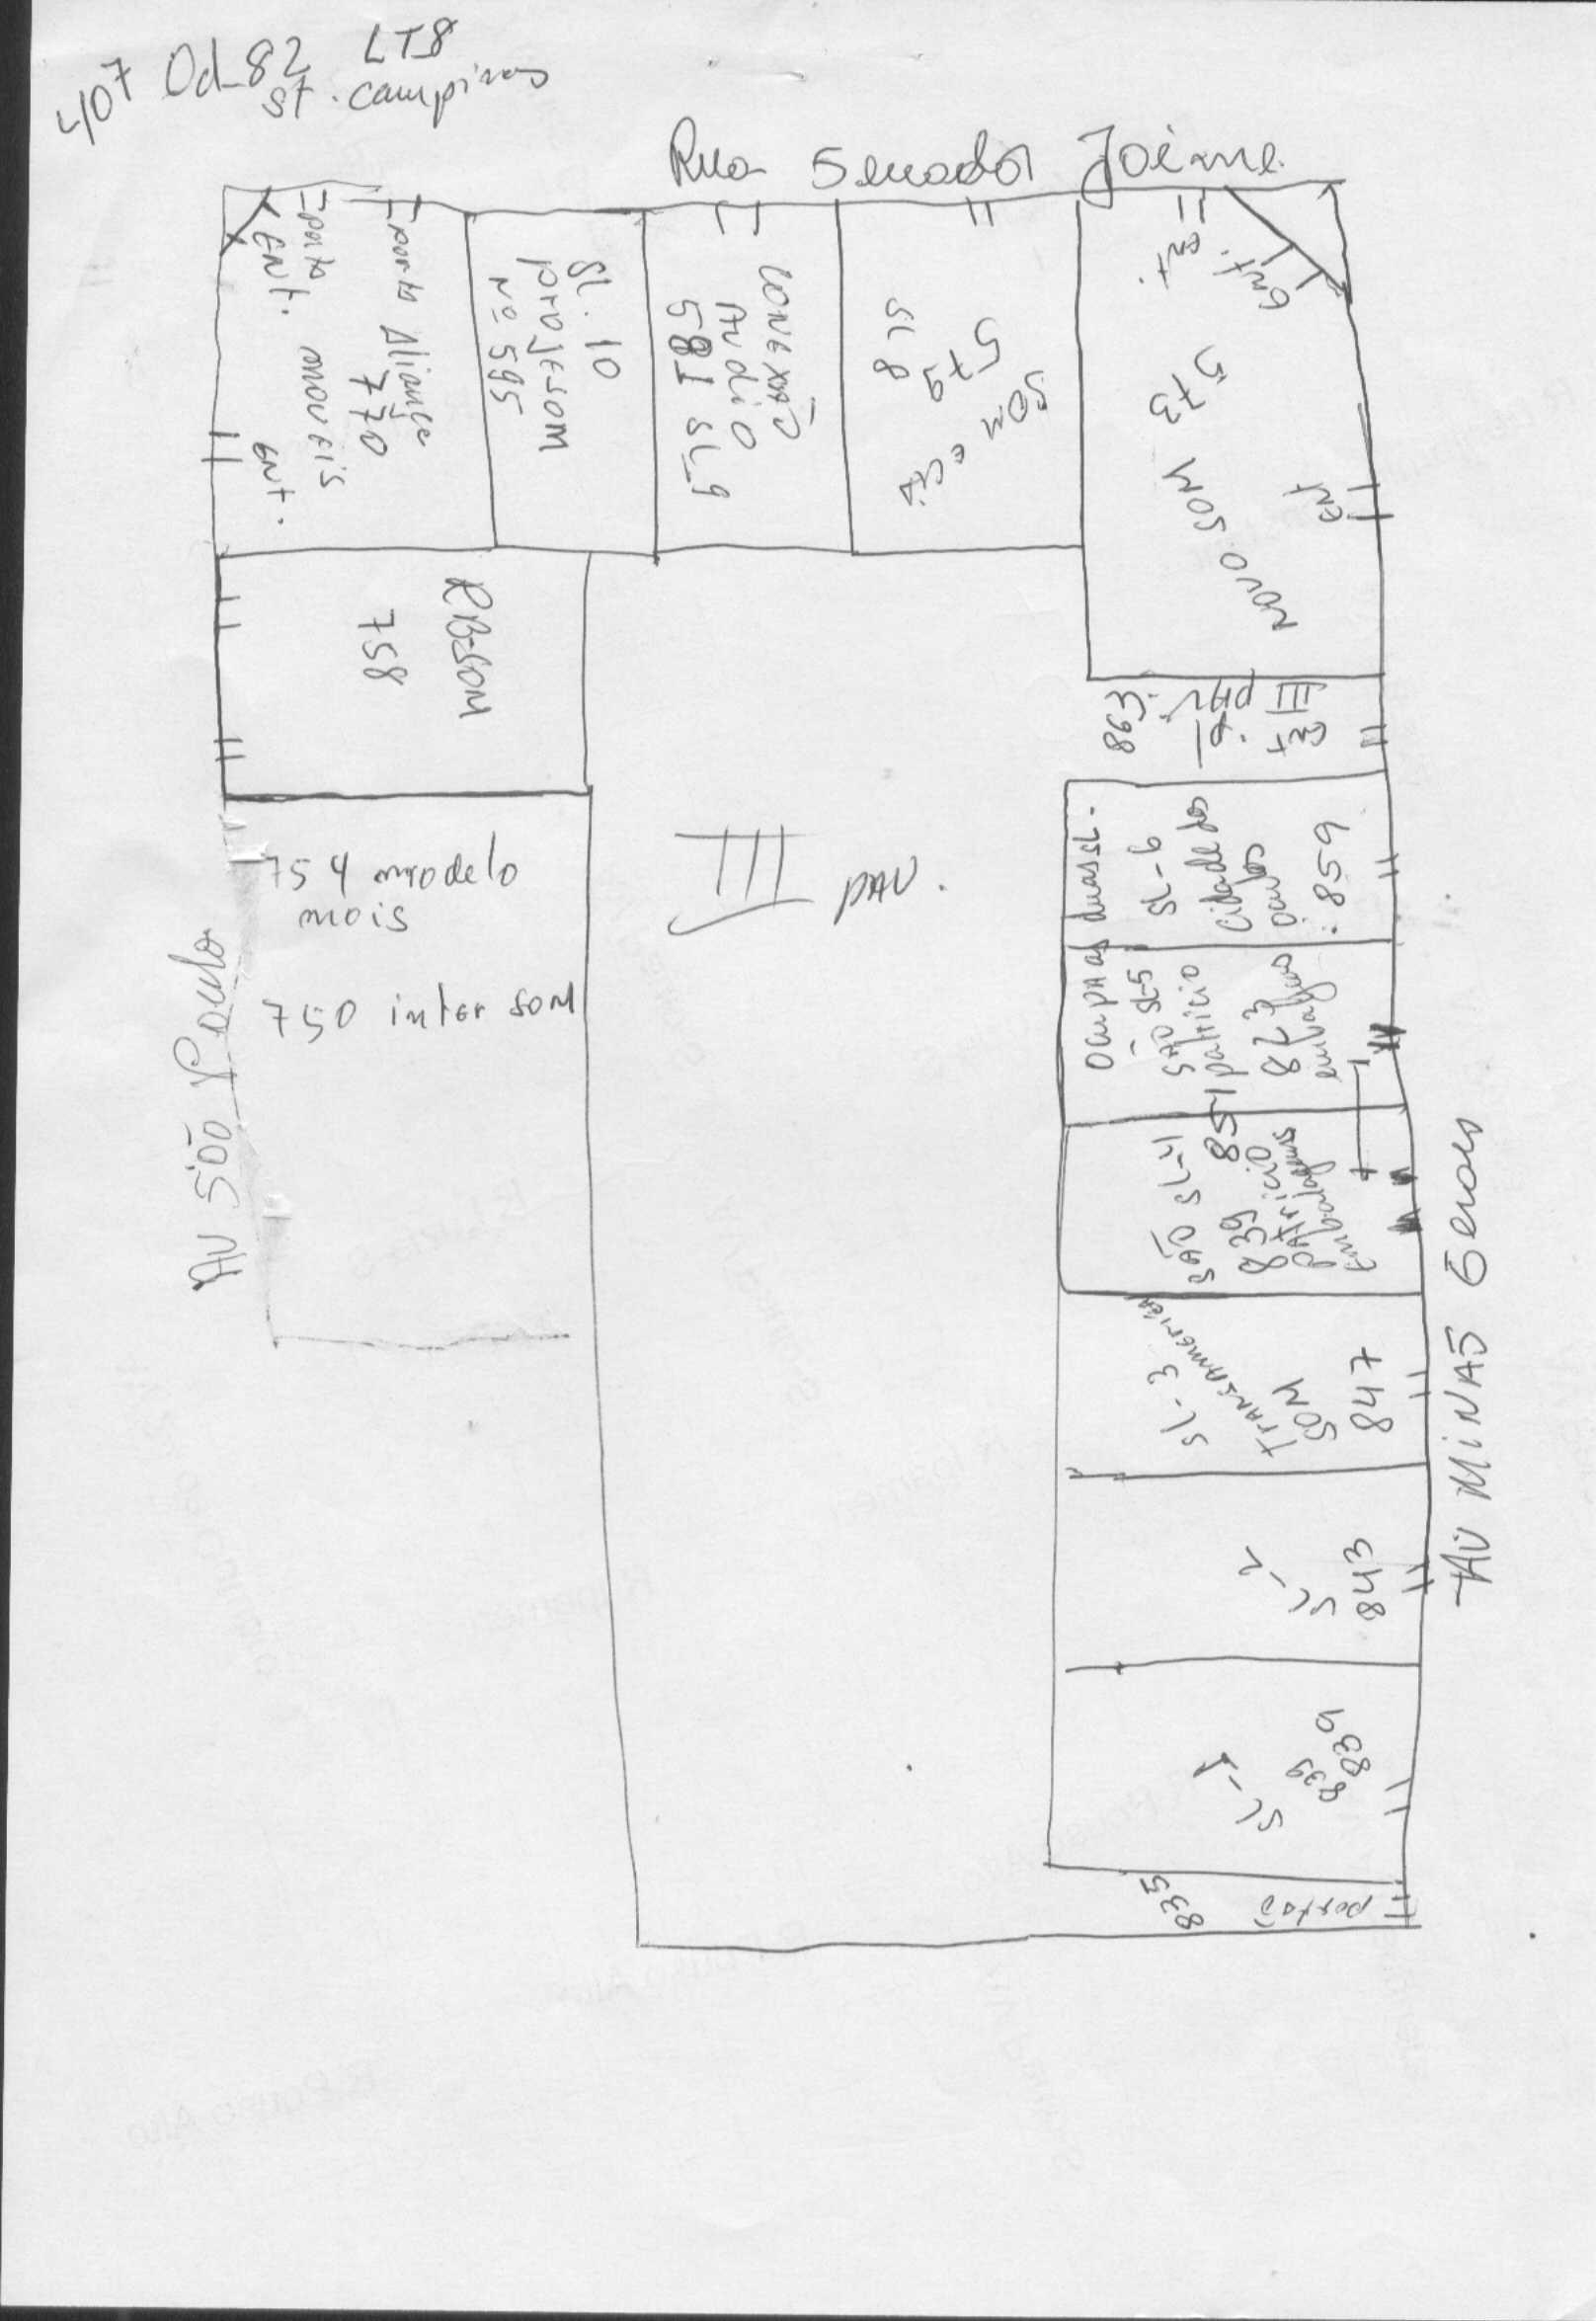 407 Qd-82 LT8
st. campinas
Rua Senador Jaime
ENT.
moveis
ENT.
Aliança
770
SL. 10
projesom
Nº 595
CONEXÃO
AUDIO
581 SL-9
SL 8
579
som e
ENT.
ENT.
573
NOVO SOM
ENT
RB-SOM
758
III
PAV.
863
754 modelo
mais
750 inter som
AV São Paulo
III PAV.
ocupa as duas sL.
SL-6
cidade dos
: 859
SL-5
SÃO
patricio
823
embalagens
851
SL-4
SÃO
839
PATRICIO
Embalagens
SL-3
TRANSAMERICA
SOM
847
SL-2
843
SL-1
839
839
835
portão
AV MINAS Gerais